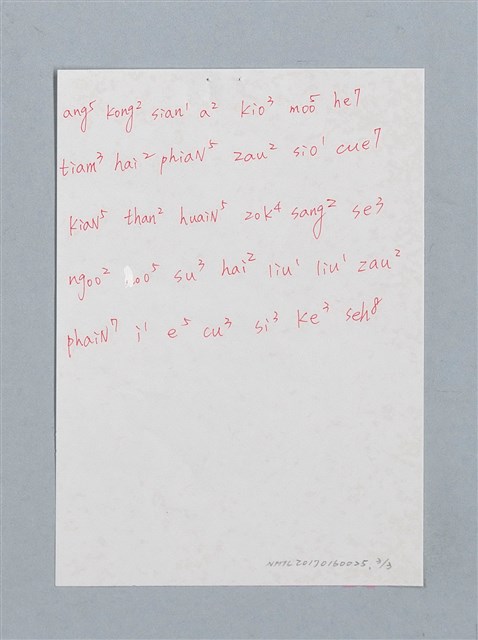 ang⁵ kong² sian¹ a² kio³ moo⁵ he⁷
tiam³ hai² phiaN⁵ zau² sio¹ cue⁷
kiaN⁵ than² huaiN⁵ zok⁴ sang² se³
ngoo² oo⁵ su³ hai² liu¹ liu¹ zau²
phaiN⁷ i¹ e⁵ cu³ si³ ke³ seh⁸
NMTL20170160025, 3/3